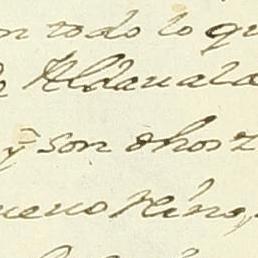 n todo lo qu
e Aldauala
q̃ son dhos z
ueno King,